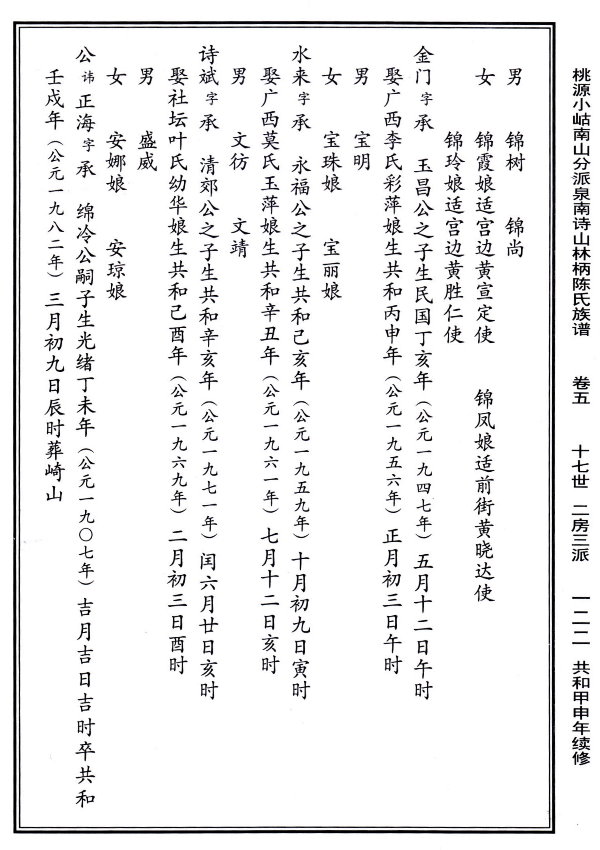 桃源小岵南山分派泉南诗山林柄陈氏族谱 卷五 十七世 二房三派 一二二 共和甲申年续修
男 锦树 锦尚
女 锦霞娘适宫边黄宣定使 锦凤娘适前街黄晓达使
锦玲娘适宫边黄胜仁使
金门字承 玉昌公之子生民国丁亥年（公元一九四七年）五月十二日午时
娶广西李氏彩萍娘生共和丙申年（公元一九五六年）正月初三日午时
男 宝明
女 宝珠娘 宝丽娘
水来字承 永福公之子生共和己亥年（公元一九五九年）十月初九日寅时
娶广西莫氏玉萍娘生共和辛丑年（公元一九六一年）七月十二日亥时
男 文彷 文靖
诗斌字承 清郊公之子生共和辛亥年（公元一九七一年）闰六月廿日亥时
娶社坛叶氏幼华娘生共和己酉年（公元一九六九年）二月初三日酉时
男 盛威
女 安娜娘 安琼娘
公讳正海字承 绵冷公嗣子生光绪丁未年（公元一九〇七年）吉月吉日吉时卒共和
壬戌年（公元一九八二年）三月初九日辰时葬崎山